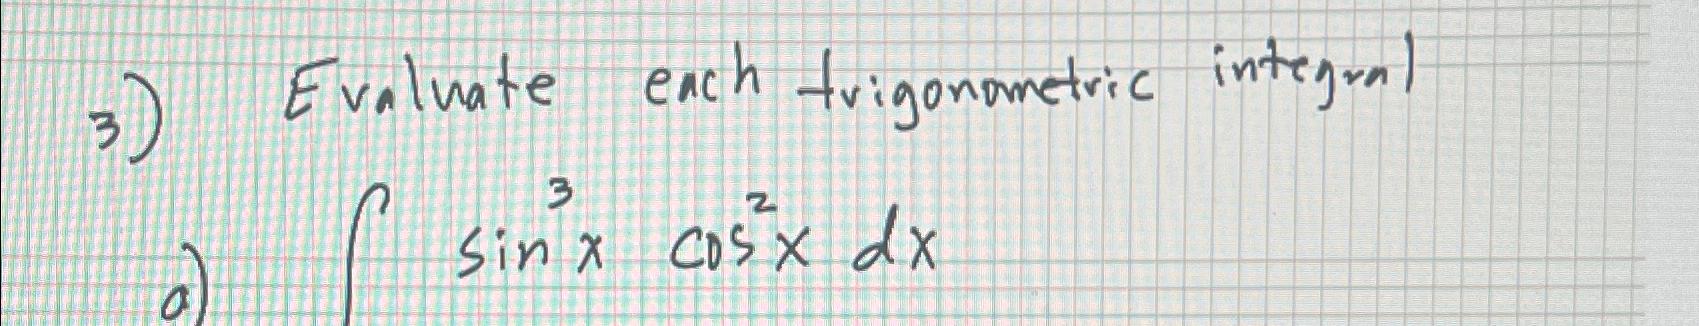 3) Evaluate each trigonometric integral
a) ∫ sin³x cos²x dx